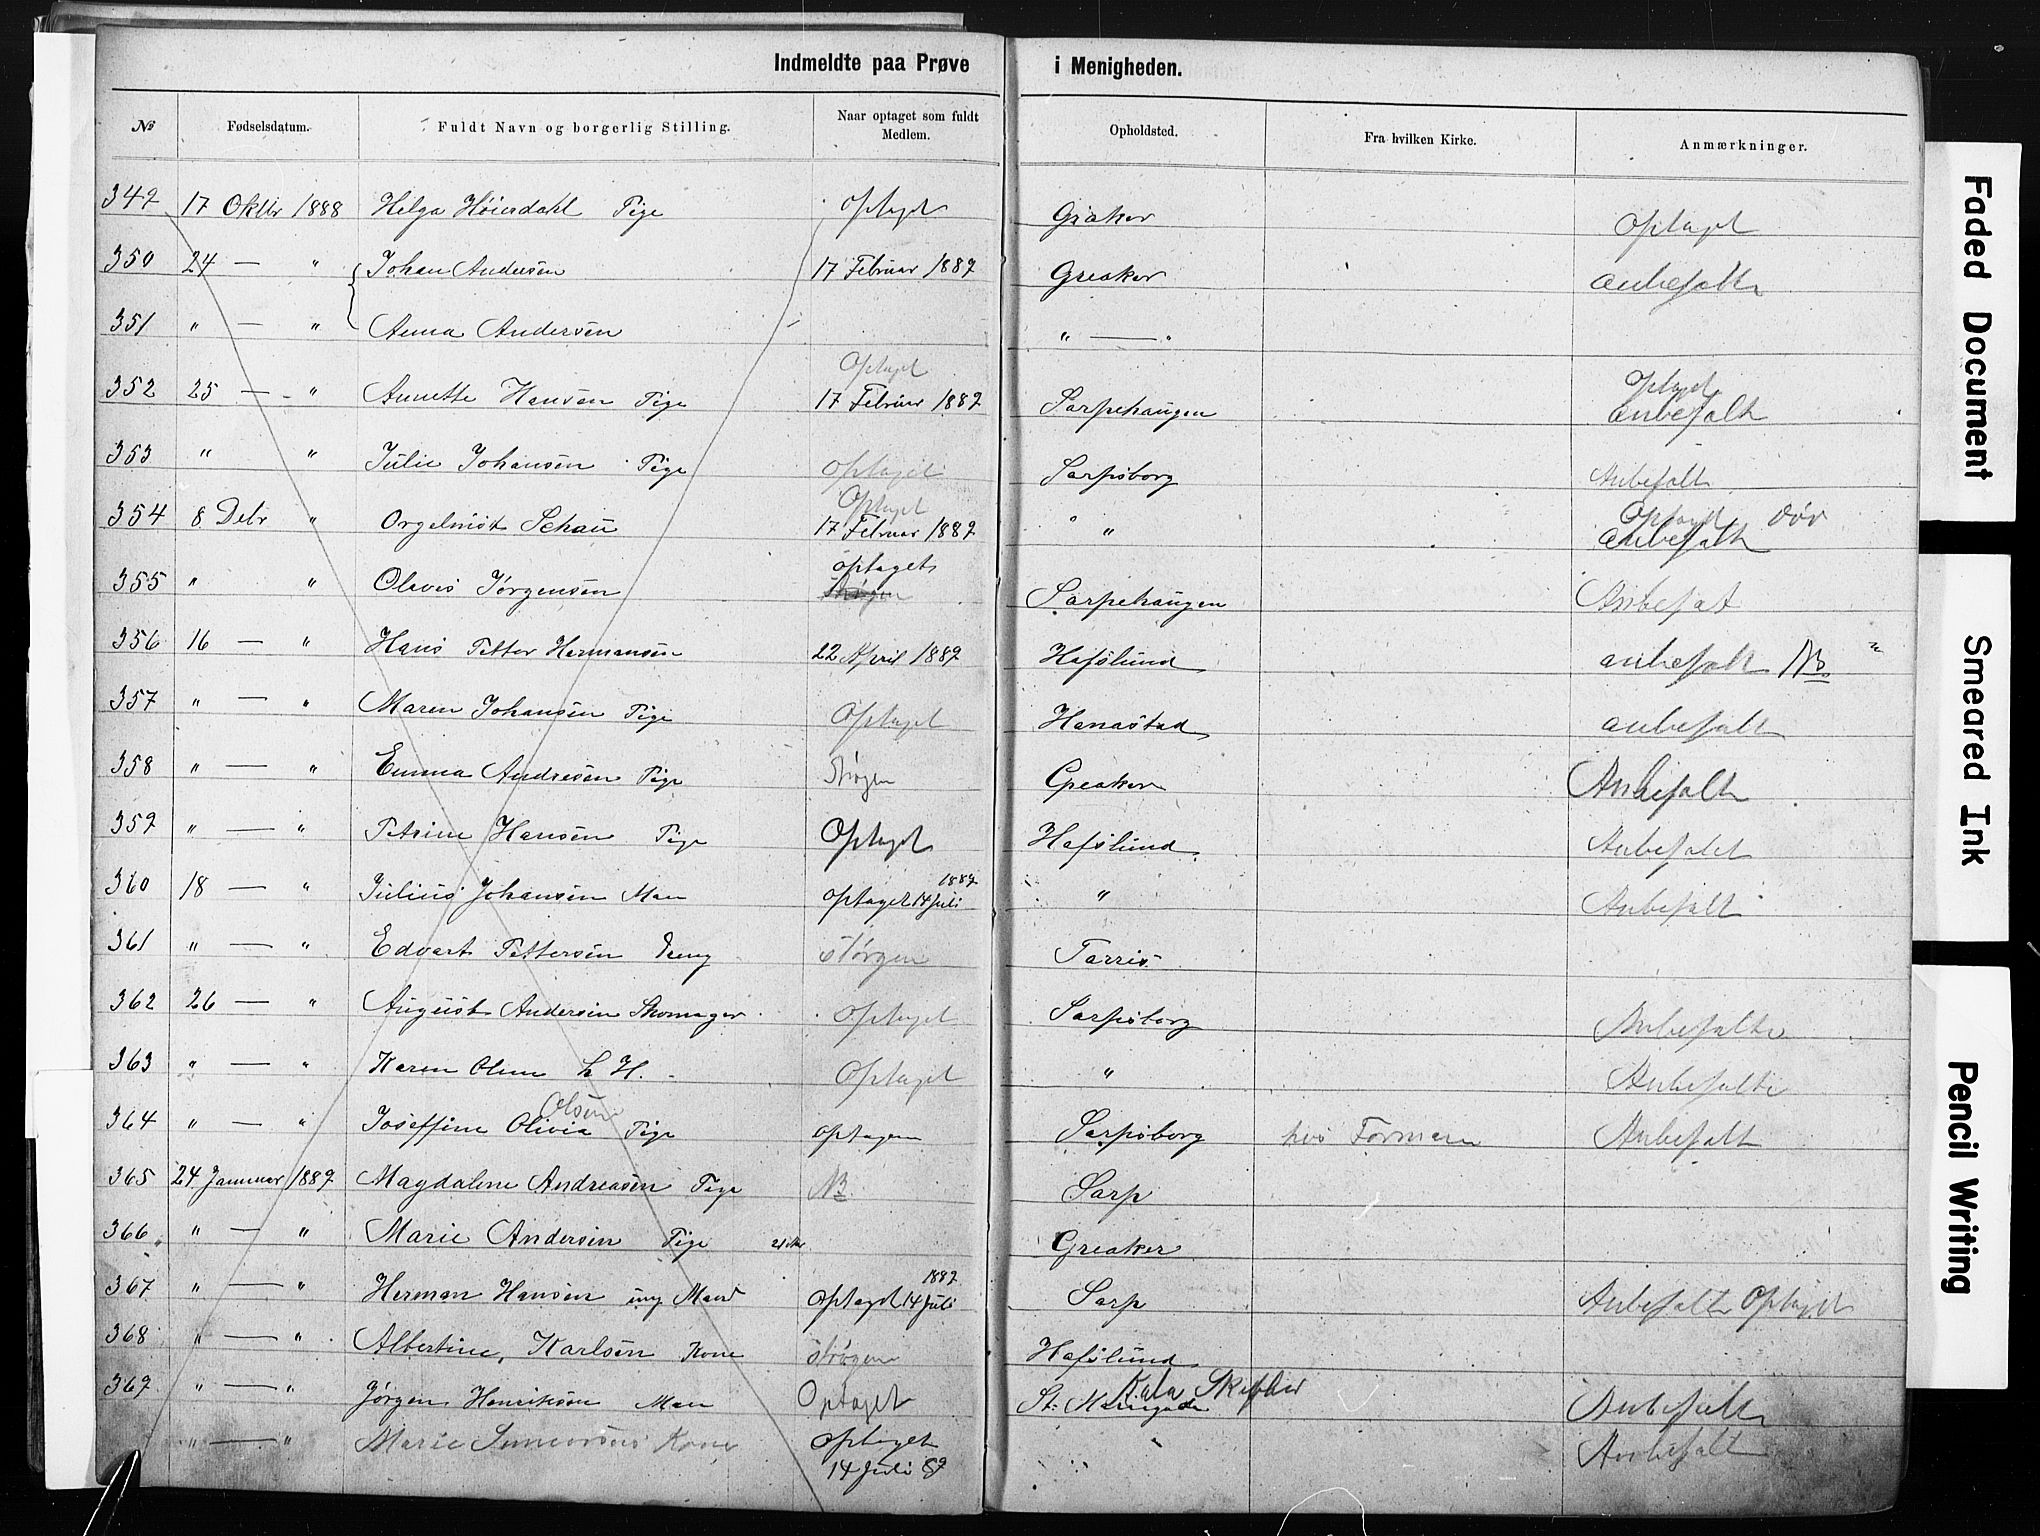 Indmeldte paa Prøve i Menigheden.
№ Fødselsdatum. Fuldt Navn og borgerlig Stilling. Naar optaget som fuldt Medlem. Opholdsted. Fra hvilken Kirke. Anmærkninger.
349 17 Oktbr 1888 Helga Høierdahl Pige Optaget Greaker Optaget
350 24 — " Johan Andersen 17 Februar 1889 Greaker anbefalt
351 " — " Anna Andersen " — "
Optaget Optaget
352 25 — " Annette Hansen Pige 17 Februar 1889 Sarpehaugen anbefalt
353 " " Julie Johansen Pige optaget Sarpsborg Anbefalt
Optaget Optaget
354 8 Debr " Orgelnist Schau 17 Februar 1889 " anbefalt
optaget
355 " " Olavis Jørgensen Strøgen Sarpehaugen Anbefat
356 16 — " Hans Petter Hermansen 22 April 1889 Hafslund anbefalt NB
357 " — " Maren Johansen Pige Optaget Hanastad anbefalt
358 " — " Emma Andresen Pige Strøgen Greaker Anbefalt
359 " — " Petrine Hansen Pige Optaget Hafslund Anbefalet
1889
360 18 — " Julius Johansen Man optaget 14 Juli " Anbefalt
361 " — " Edvart Pettersen Dreng strøgen Tarris
362 26 — " August Andersen Skomager Optaget Sarpsborg Anbefalt
363 " — " Karen Olsen L H. Optaget " Anbefalt
Olsen
364 " — " Joseffine Olivia Pige optagen Sarpsborg hos Forman Anbefalt
365 24 Januar 1889 Magdalene Andreasen Pige NB Sarp
366 " — " Marie Andersen Pige Greaker
1889
367 " — " Herman Hansen ung Mand Optaget 14 Juli Sarp Anbefalt Optaget
368 " — " Albertine Karlsen Kone strøgen Hafslund
369 " — " Jørgen Henriksen Man Optaget St. Mariegade Anbefalt
" — " Marie Kone Optaget Anbefalt
14 Juli 89
Faded Document
Smeared Ink
Pencil Writing